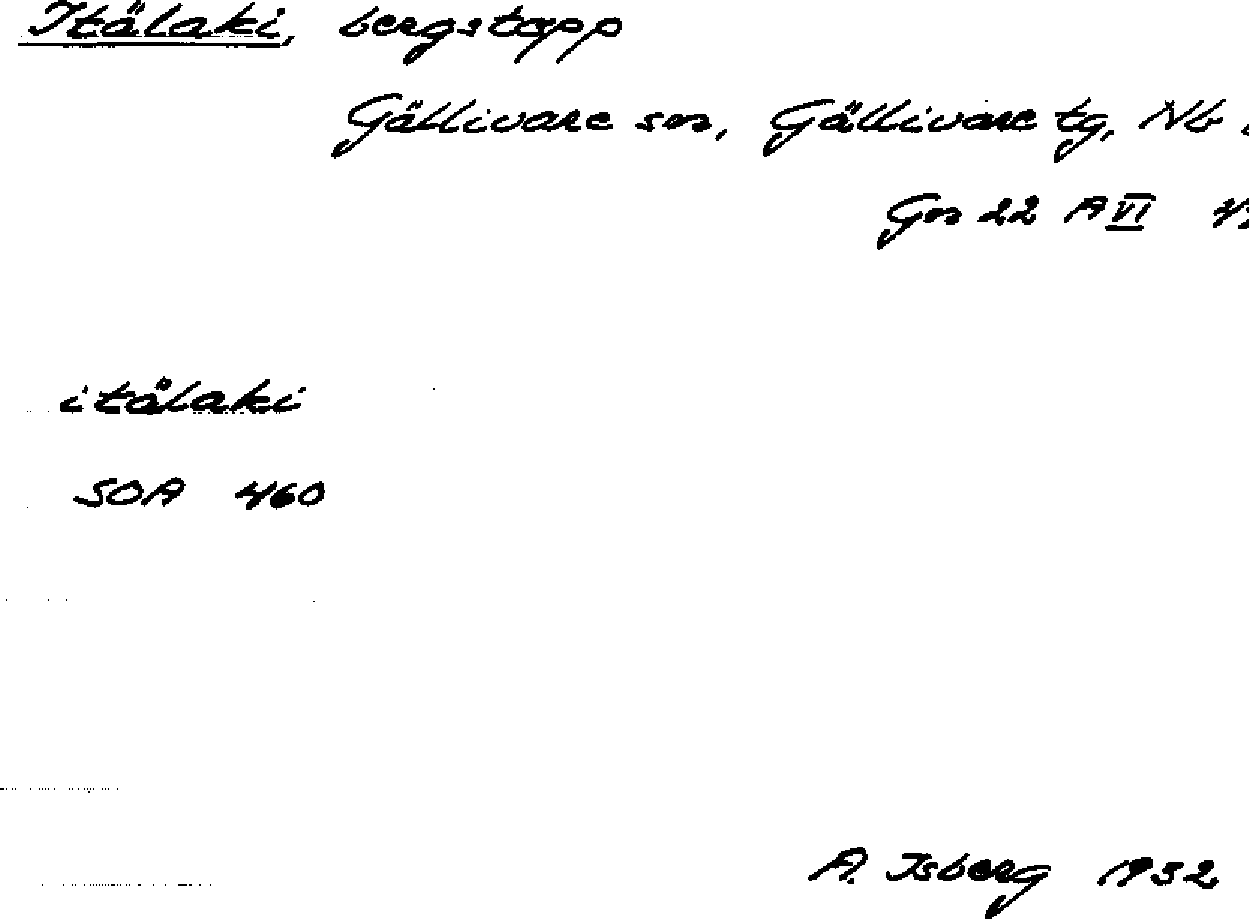 Itälaki, bergstopp
Gällivare sn, Gällivare tg, Nb
Gn 22 A VI
itålaki
SOA 460
A. Isberg 1932